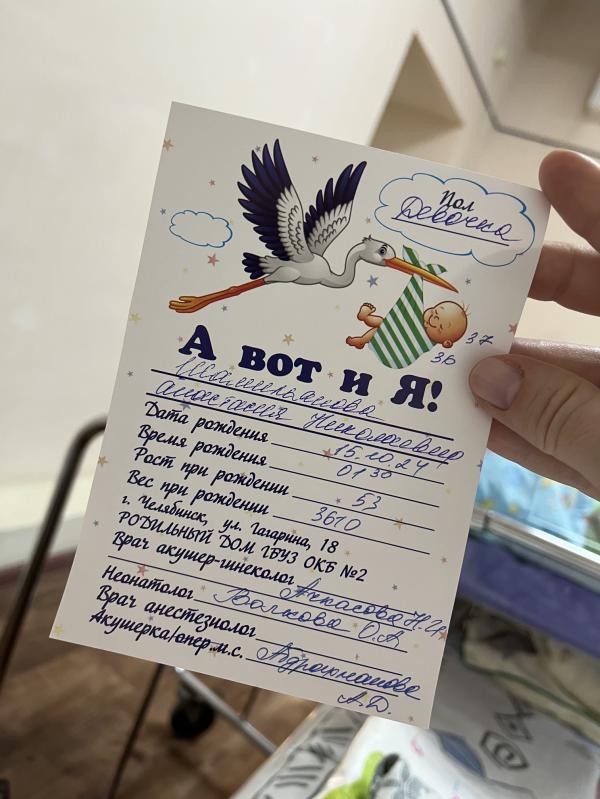 Пол
Девочка
37
36
А вот и Я!
Анастасия Николаевна
Дата рождения 15.10.24
Время рождения 01 30
Рост при рождении 53
Вес при рождении 3610
г. Челябинск, ул. Гагарина, 18
РОДИЛЬНЫЙ ДОМ ГБУЗ ОКБ №2
Врач акушер-гинеколог
Неонатолог Волкова О.А
Врач анестезиолог
Акушерка/опер.м.с.
А.Д.